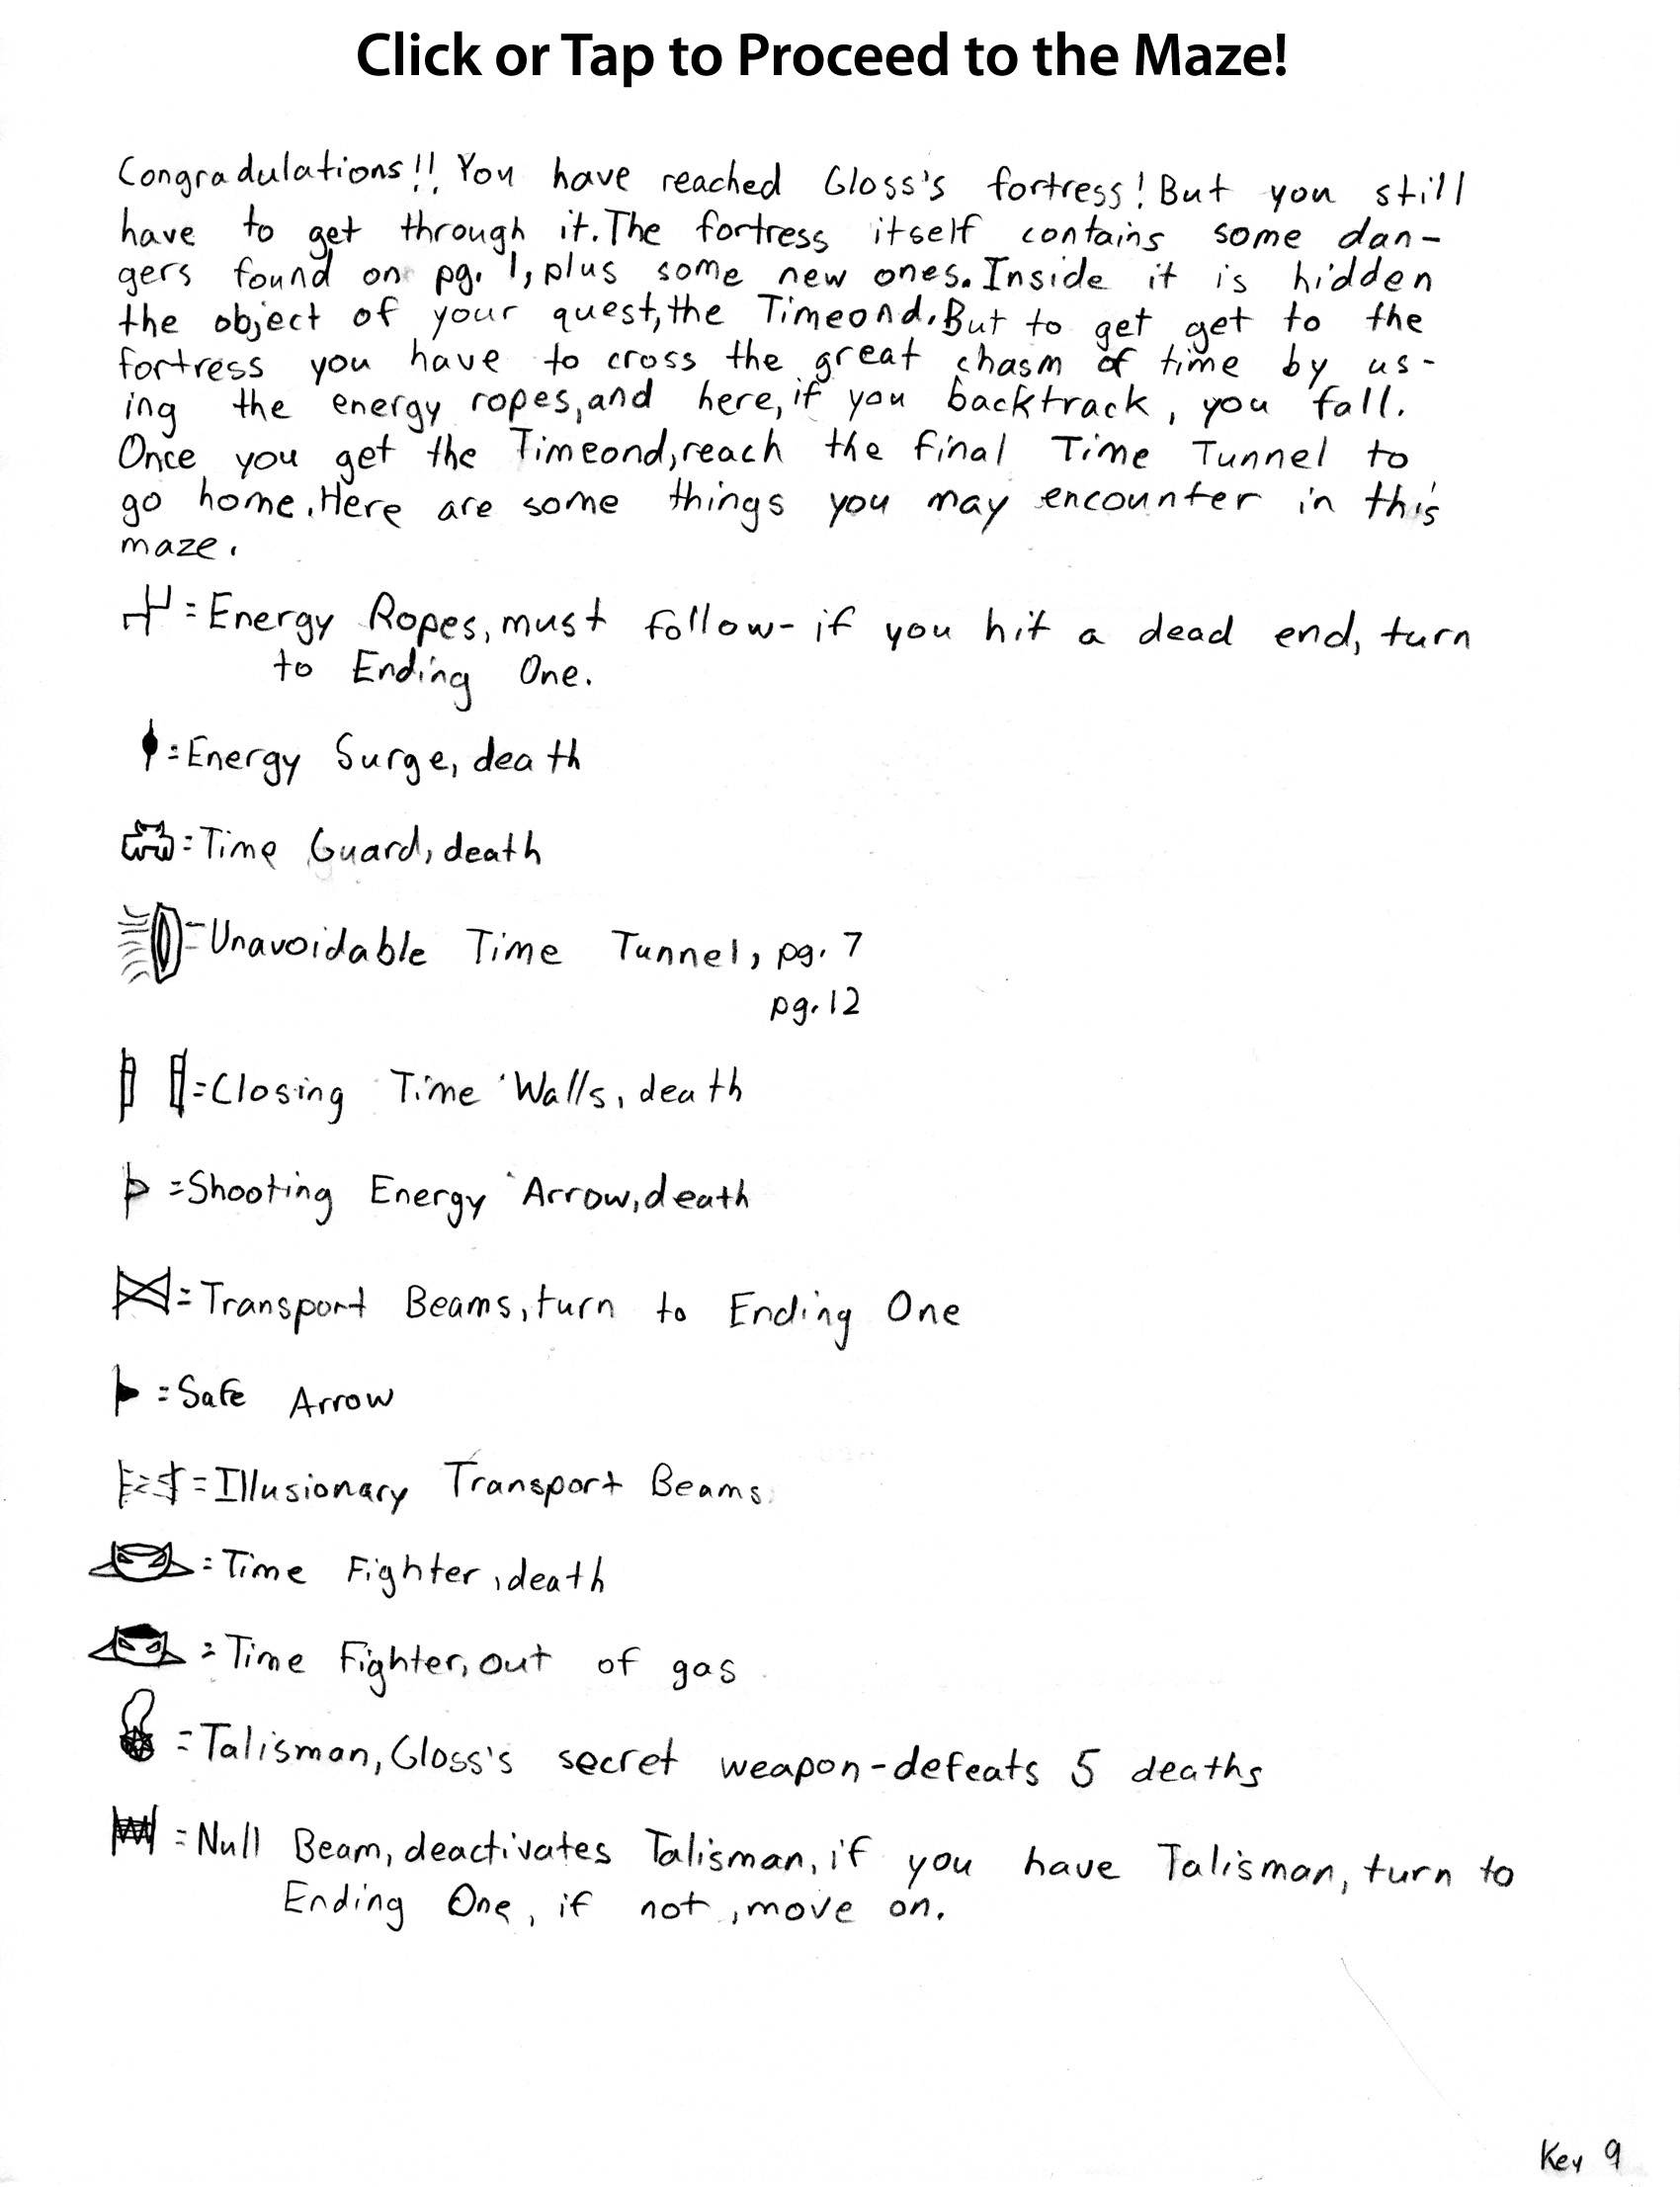 Click or Tap to Proceed to the Maze!
Congradulations!! You have reached Gloss's fortress! But you still
have to get through it. The fortress itself contains some dan-
gers found on pg. 1, plus some new ones. Inside it is hidden
the object of your quest, the Timeond. But to get get to the
fortress you have to cross the great chasm of time by us-
ing the energy ropes, and here, if you backtrack, you fall.
Once you get the Timeond, reach the final Time Tunnel to
go home. Here are some things you may encounter in this
maze.
= Energy Ropes, must follow- if you hit a dead end, turn
to Ending One.
= Energy Surge, death
= Time Guard, death
= Unavoidable Time Tunnel, pg. 7
pg. 12
= Closing Time Walls, death
= Shooting Energy Arrow, death
= Transport Beams, turn to Ending One
= Safe Arrow
= Illusionary Transport Beams
= Time Fighter, death
= Time Fighter, out of gas
= Talisman, Gloss's secret weapon-defeats 5 deaths
= Null Beam, deactivates Talisman, if you have Talisman, turn to
Ending One, if not, move on.
Key 9